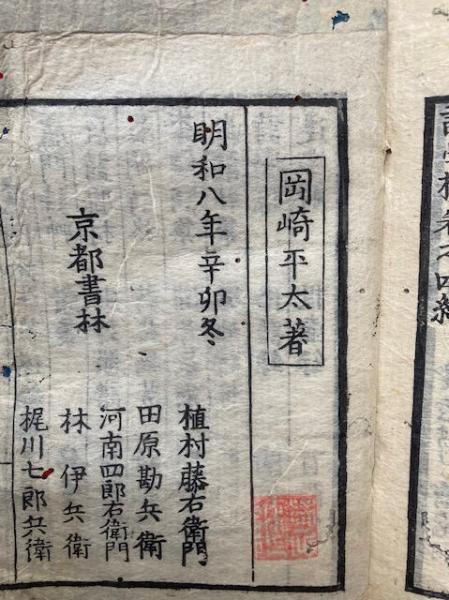 卷之四終
岡崎平太著
明和八年辛卯冬
京都書林
植村藤右衛門
田原勘兵衛
河南四郎右衛門
林伊兵衛
梶川七郎兵衛